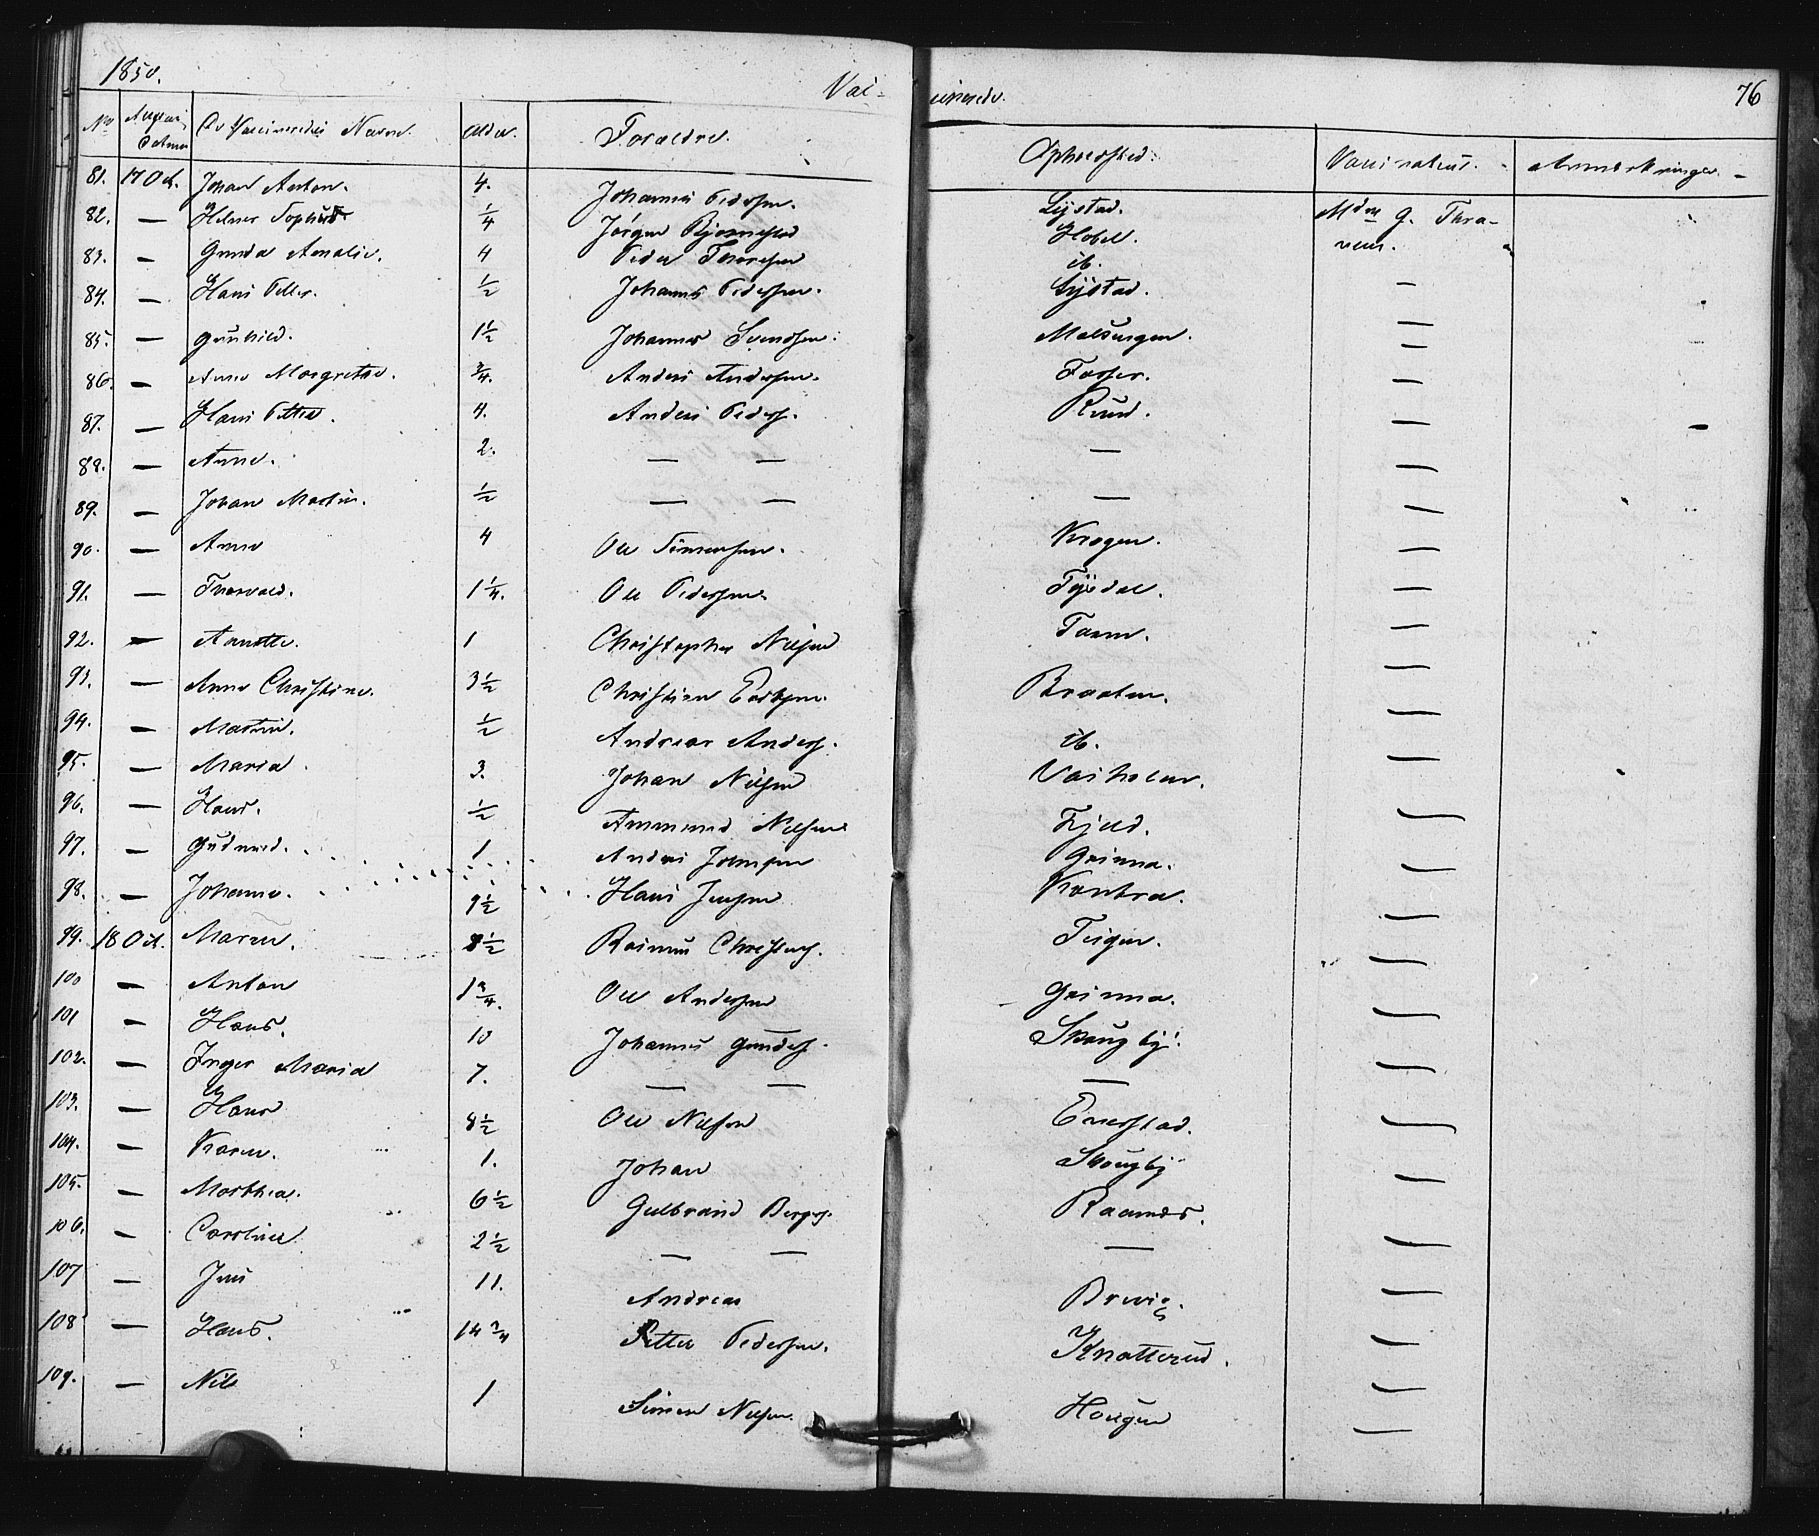 1850. Vac- cinerede. 76
No Den Vaccineredes Navn. Alder. Forældre. Opholdssted. Vaccinateur. Anmærkninger.
81. 17 Oct. Johan Anton. 4. Johannes Pedersen. Lystad. Mdm G. Thra-
82. — Helmer Sophus ¼ Jørgen Bjørnestad Hobel. nem.
83. — Gunda Amalie. 4 Peder Thoresen ib.
84. — Hans Petter. ½ Johannes Pedersen. Lystad. —
85. — Gunhild. 1½ Johannes Svendsen. —
86. — Anne Margrethe. ¾. Anders Andersen. Fosser. —
87. — Hans Petter. 4. Anders Peders. Ruud. —
88. — Anne. 2. — — — —
89. — Johan Martin. ½ — — — —
90. — Anne 4 Ole Simensen. Krogen. —
91. — Thorvald. 1¼. Ole Pedersen. —
92. — Annette. 1 Christopher Nilsen —
93. — Anne Christine. 3½ Christian Braaten. —
94. — Martin. ½ Andreas Anders. ib. —
95. — Maria. 3. Johan Nilsen —
96. — Hans. ½ Ammund Nilsen Fjeld. —
97. — Gudmund. 1 Anders Johnsen Grinna. —
98. — Johanne. 9½ Hans Jensen Kantra. —
99. 18 Oct. Maren. 8½ Rasmus Christens. Teigen. —
100 — Anton 1¾. Ole Andersen Grinna. —
101 — Hans. 10 Johannes Gunders. Skougby. —
102. — Inger Maria 7. — — — —
103. — Hans 8½ Ole Nilsen Enerstad. —
104. — Karen. 1. Johan Skougby —
105. — Marthea. 6½ Gulbrand Bergers. Raanæs. —
106. — Caroline 2½ — — — —
107 — Jens 11. Andreas Brevig. —
108 — Hans. 14¾ Petter Pedersen. Knatterud. —
109. — Nils 1 Simen Nilsen. Hougen —